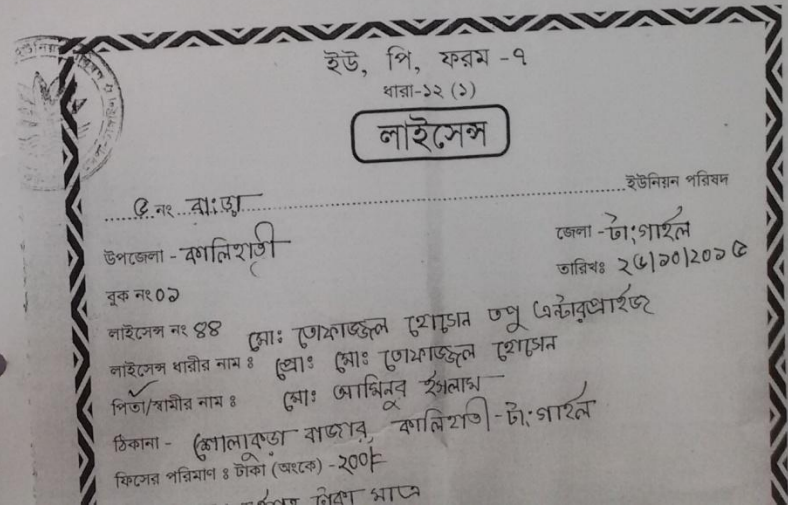 ইউ, পি, ফরম -৭
ধারা-১২ (১)
লাইসেন্স
৫ নং বাংড়া ইউনিয়ন পরিষদ
উপজেলা - কালিহাতী জেলা - টাংগাইল
বুক নং ০১ তারিখঃ ২৫/১০/২০১৫
লাইসেন্স নং ৪৪ মোঃ তোফাজ্জল হোসেন তপু এন্টারপ্রাইজ
লাইসেন্স ধারীর নাম ঃ প্রোঃ মোঃ তোফাজ্জল হোসেন
পিতা/স্বামীর নাম ঃ মোঃ আমিনুর ইসলাম
ঠিকানা - শোলাকুড়া বাজার, কালিহাতী - টাংগাইল
ফিসের পরিমাণ ঃ টাকা (অংকে) - ২০০/=
টাকা মাত্র